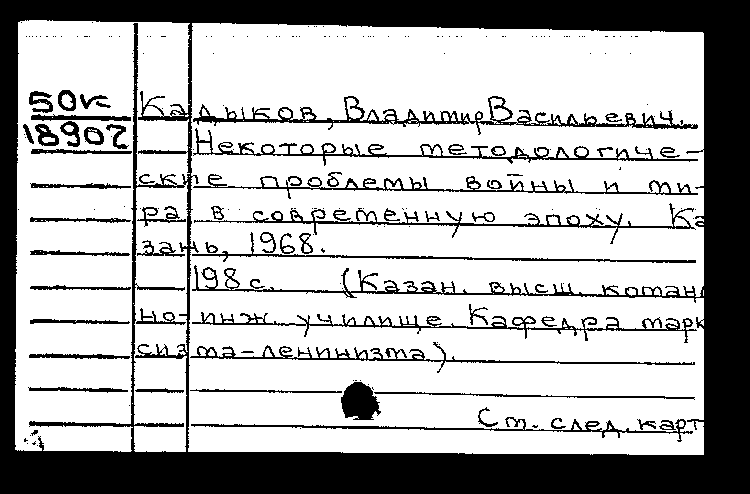 50к Кадыков, Владимир Васильевич.
18902 Некоторые методологиче-
ские проблемы войны и ми-
ра в современную эпоху. Ка
зань, 1968.
198 с. (Казан. высш. коман
но-инж. училище. Кафедра марк
сизма-ленинизма).
См. след. карт